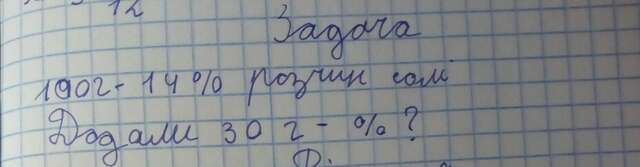 12
Задача
190г - 14% розчин солі
Додали 30 г - % ?